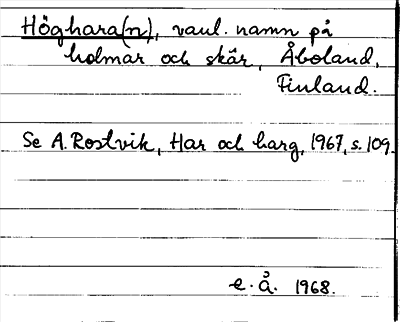 Höghara(n), vanl. namn på
holmar och skär, Åboland,
Finland.
Se A. Rostvik, Har och harg, 1967, s. 109.
e. å. 1968.